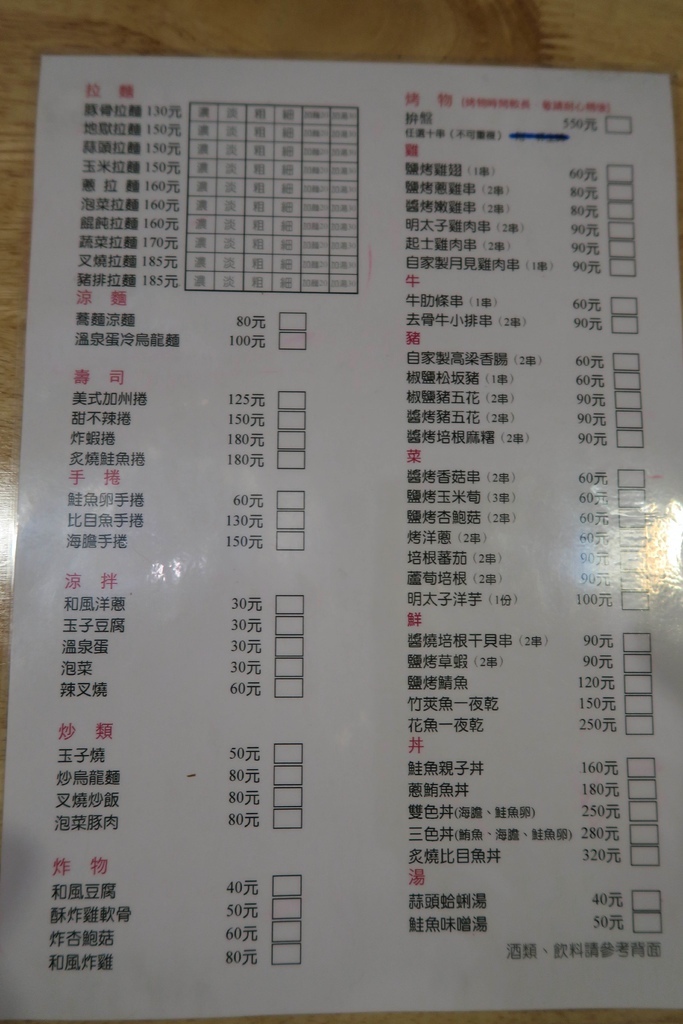 拉 麵
豚骨拉麵 130元 濃 淡 粗 細
地獄拉麵 150元 濃 淡 粗 細
蒜頭拉麵 150元 濃 淡 粗 細
玉米拉麵 150元 濃 淡 粗 細
蔥 拉 麵 160元 濃 淡 粗 細
泡菜拉麵 160元 濃 淡 粗 細
餛飩拉麵 160元 濃 淡 粗 細
蔬菜拉麵 170元 濃 淡 粗 細
叉燒拉麵 185元 濃 淡 粗 細
豬排拉麵 185元 濃 淡 粗 細
涼 麵
蕎麵涼麵 80元
溫泉蛋冷烏龍麵 100元
壽 司
美式加州捲 125元
甜不辣捲 150元
炸蝦捲 180元
炙燒鮭魚捲 180元
手 捲
鮭魚卵手捲 60元
比目魚手捲 130元
海膽手捲 150元
涼 拌
和風洋蔥 30元
玉子豆腐 30元
溫泉蛋 30元
泡菜 30元
辣叉燒 60元
炒 類
玉子燒 50元
炒烏龍麵 80元
叉燒炒飯 80元
泡菜豚肉 80元
炸 物
和風豆腐 40元
酥炸雞軟骨 50元
炸杏鮑菇 60元
和風炸雞 80元
烤 物
拚盤 550元
任選十串（不可重複）
雞
鹽烤雞翅（1串） 60元
鹽烤蔥雞串（2串） 80元
醬烤嫩雞串（2串） 80元
明太子雞肉串（2串） 90元
起士雞肉串（2串） 90元
自家製月見雞肉串（1串） 90元
牛
牛肋條串（1串） 60元
去骨牛小排串（2串） 90元
豬
自家製高梁香腸（2串） 60元
椒鹽松坂豬（1串） 60元
椒鹽豬五花（2串） 90元
醬烤豬五花（2串） 90元
醬烤培根麻糬（2串） 90元
菜
醬烤香菇串（2串） 60元
鹽烤玉米筍（3串） 60元
鹽烤杏鮑菇（2串） 60元
烤洋蔥（2串） 60元
培根蕃茄（2串） 90元
蘆筍培根（2串） 90元
明太子洋芋（1份） 100元
鮮
醬燒培根干貝串（2串） 90元
鹽烤草蝦（2串） 90元
鹽烤鯖魚 120元
竹莢魚一夜乾 150元
花魚一夜乾 250元
丼
鮭魚親子丼 160元
蔥鮪魚丼 180元
雙色丼(海膽、鮭魚卵) 250元
三色丼(鮪魚、海膽、鮭魚卵) 280元
炙燒比目魚丼 320元
湯
蒜頭蛤蜊湯 40元
鮭魚味噌湯 50元
酒類、飲料請參考背面